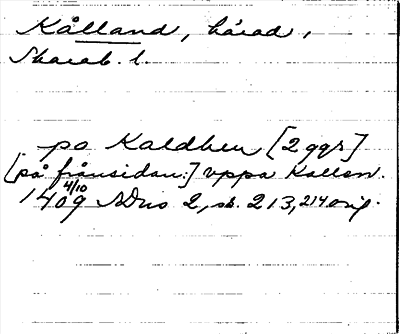 Kålland, härad,
Skarab. l.
po Kaldhen [2 ggr]
[på frånsidan:] vppa Kallen.
1409 4/10 SDns 2, sid. 213, 214 orig.